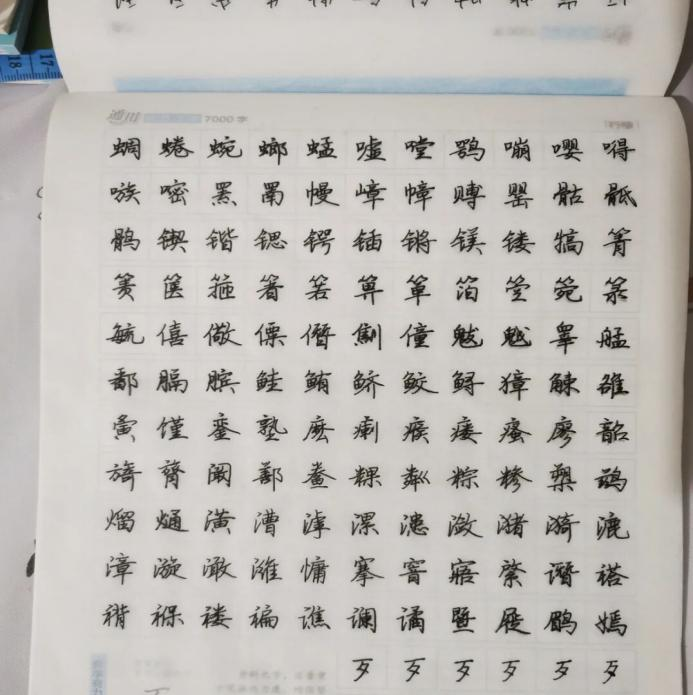 通用 7000字
蜩蜷蜿螂蜢嘘嘡鹗嘣嘤嘚
嗾嘧罴罱幔嶂幛赙罂骷骶
鹘锲锴锶锷锸锵镁镂犒箐
箦箧箍箸箬箅箪箔箜箢箓
毓僖儆僳僭劁僮魃魆睾艋
鄱膈膑鲑鲔鲚鲛鲟獐觫雒
夤馑銮塾麽瘌瘊瘘瘙廖韶
旖膂阚鄯鲞粿粼粽糁槊鹚
熘熥潢漕滹漯漶潋潴漪漉
漳漩澉潍慵搴窨寤綮谮褡
褙褓褛褊谯谰谲暨屣鹛嫣
歹歹歹歹歹歹
17 18